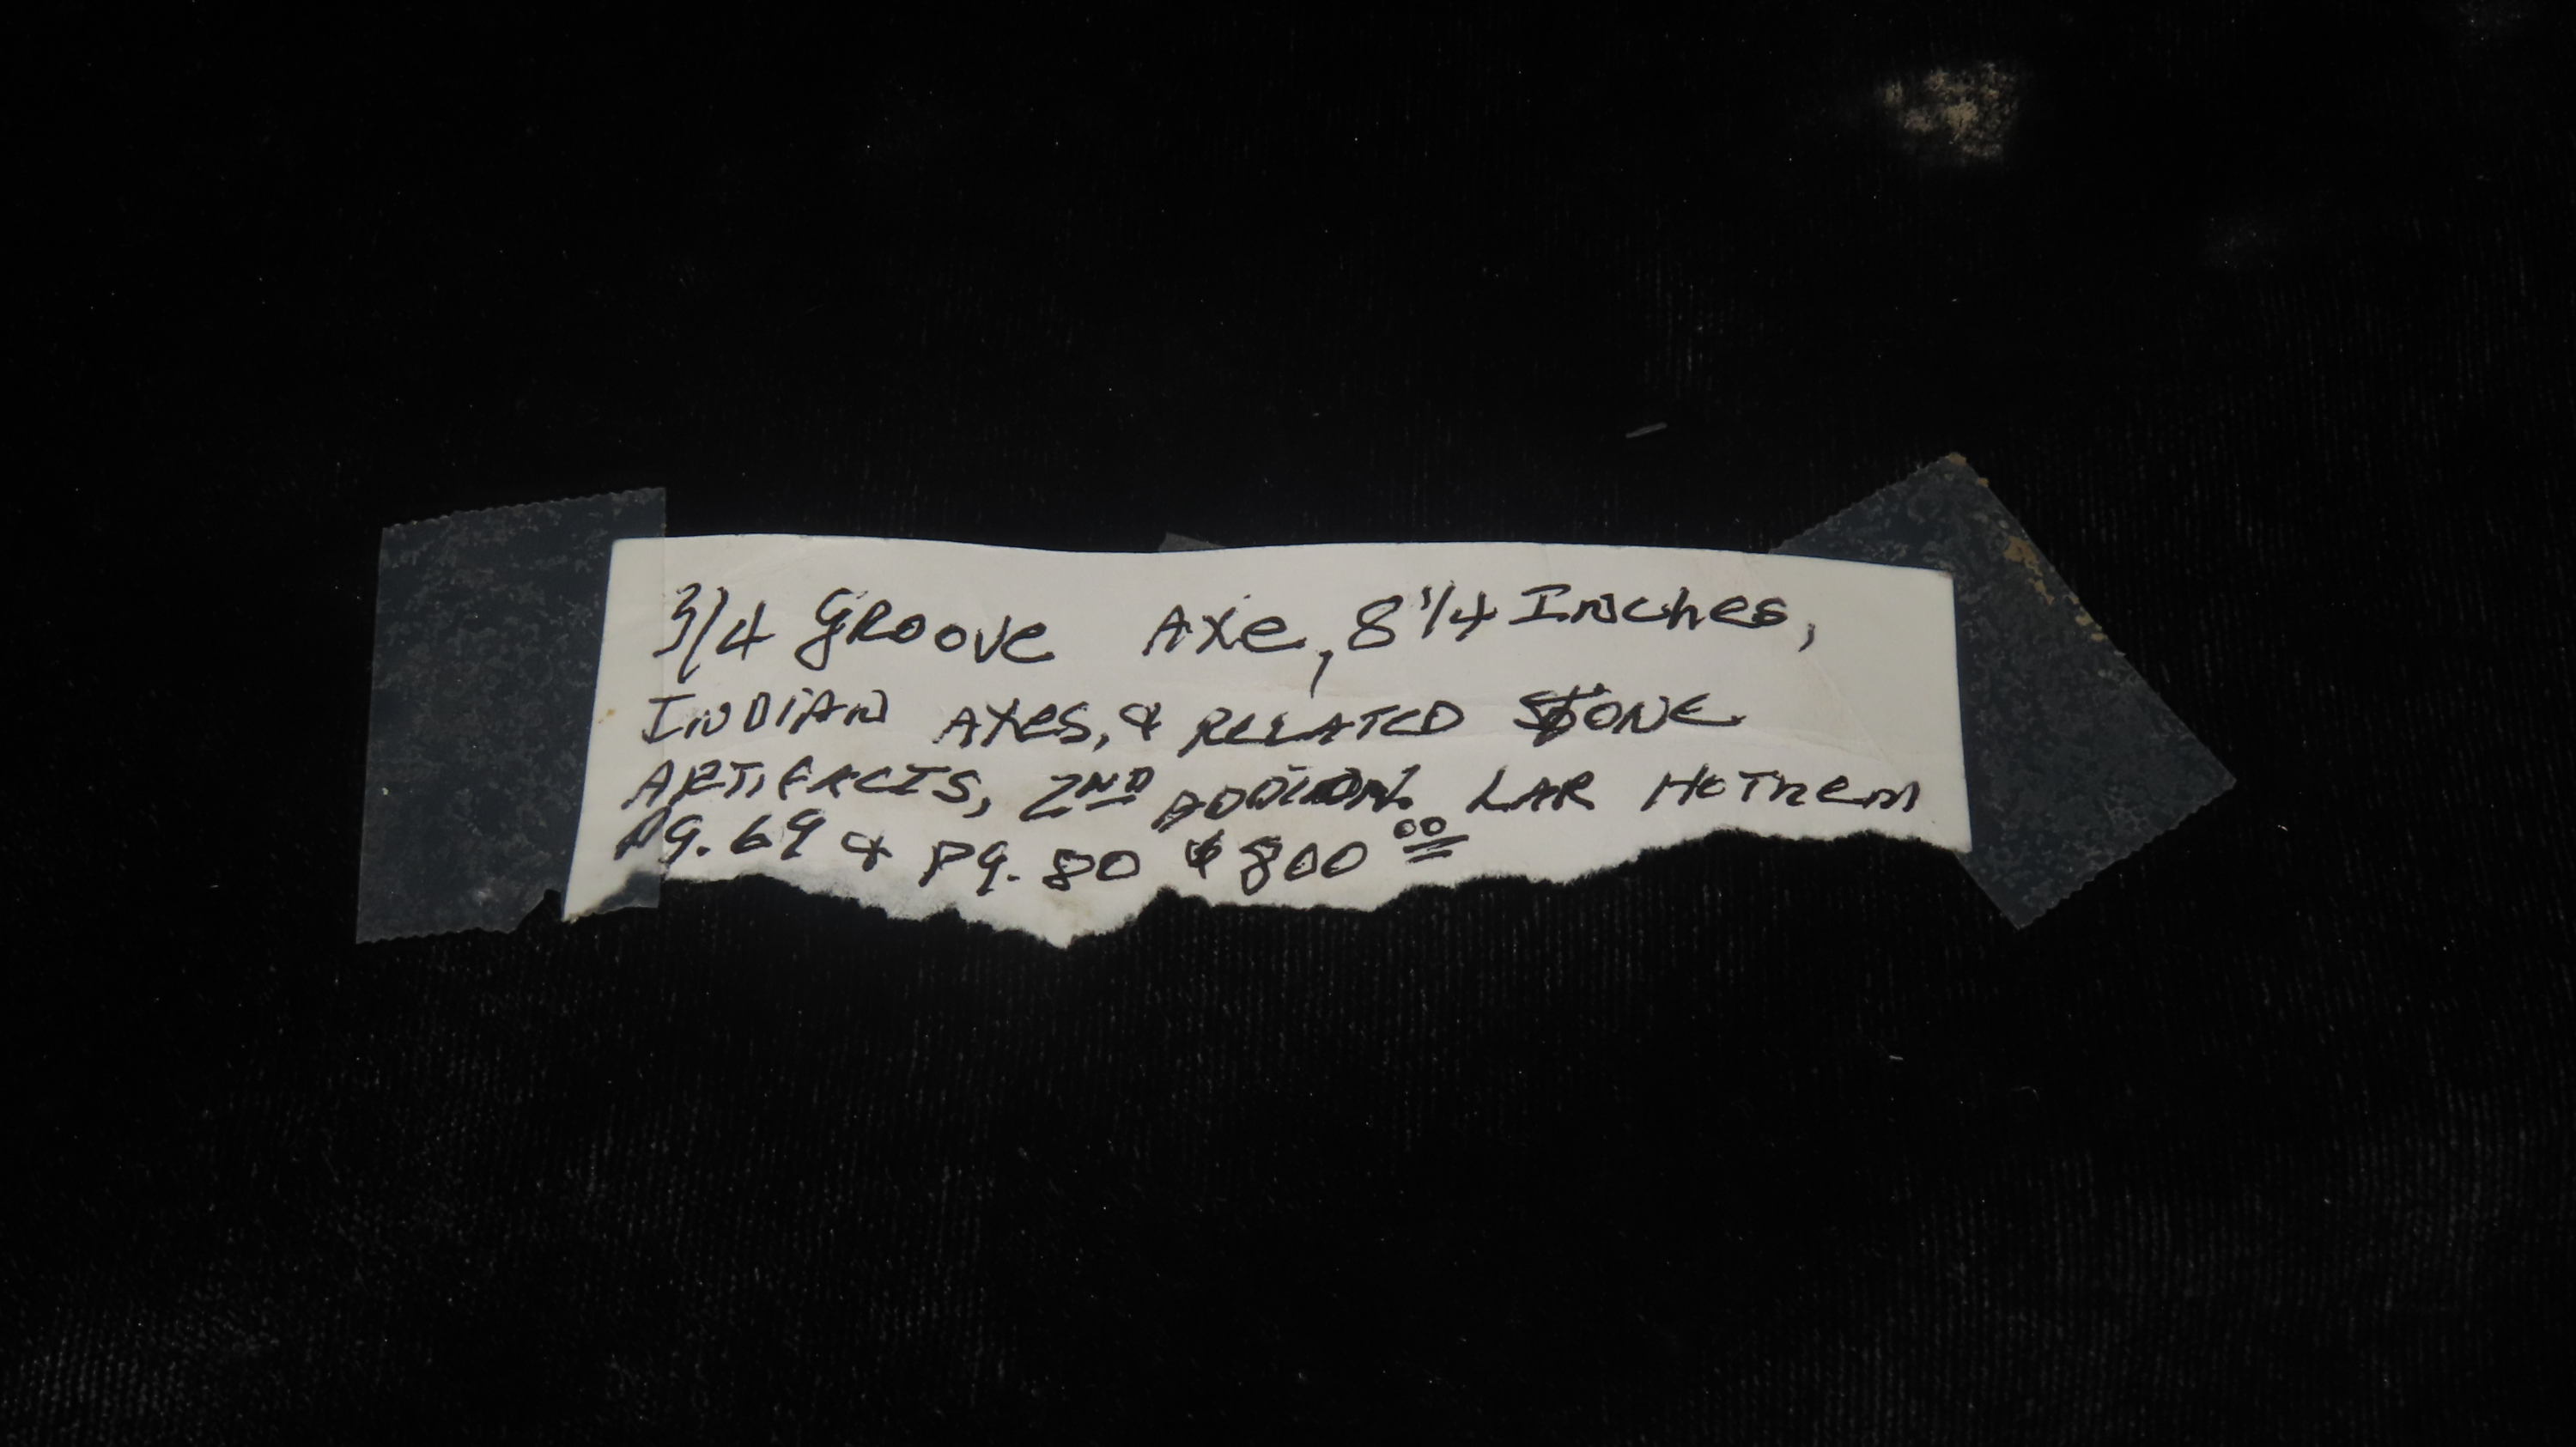 3/4 GROOVE AXE, 8 1/4 INCHES,
INDIAN AXES, & RELATED STONE
ARTIFACTS, 2ND ADDITION. LAR HOTHEM
Pg. 69 & Pg. 80 $800.00